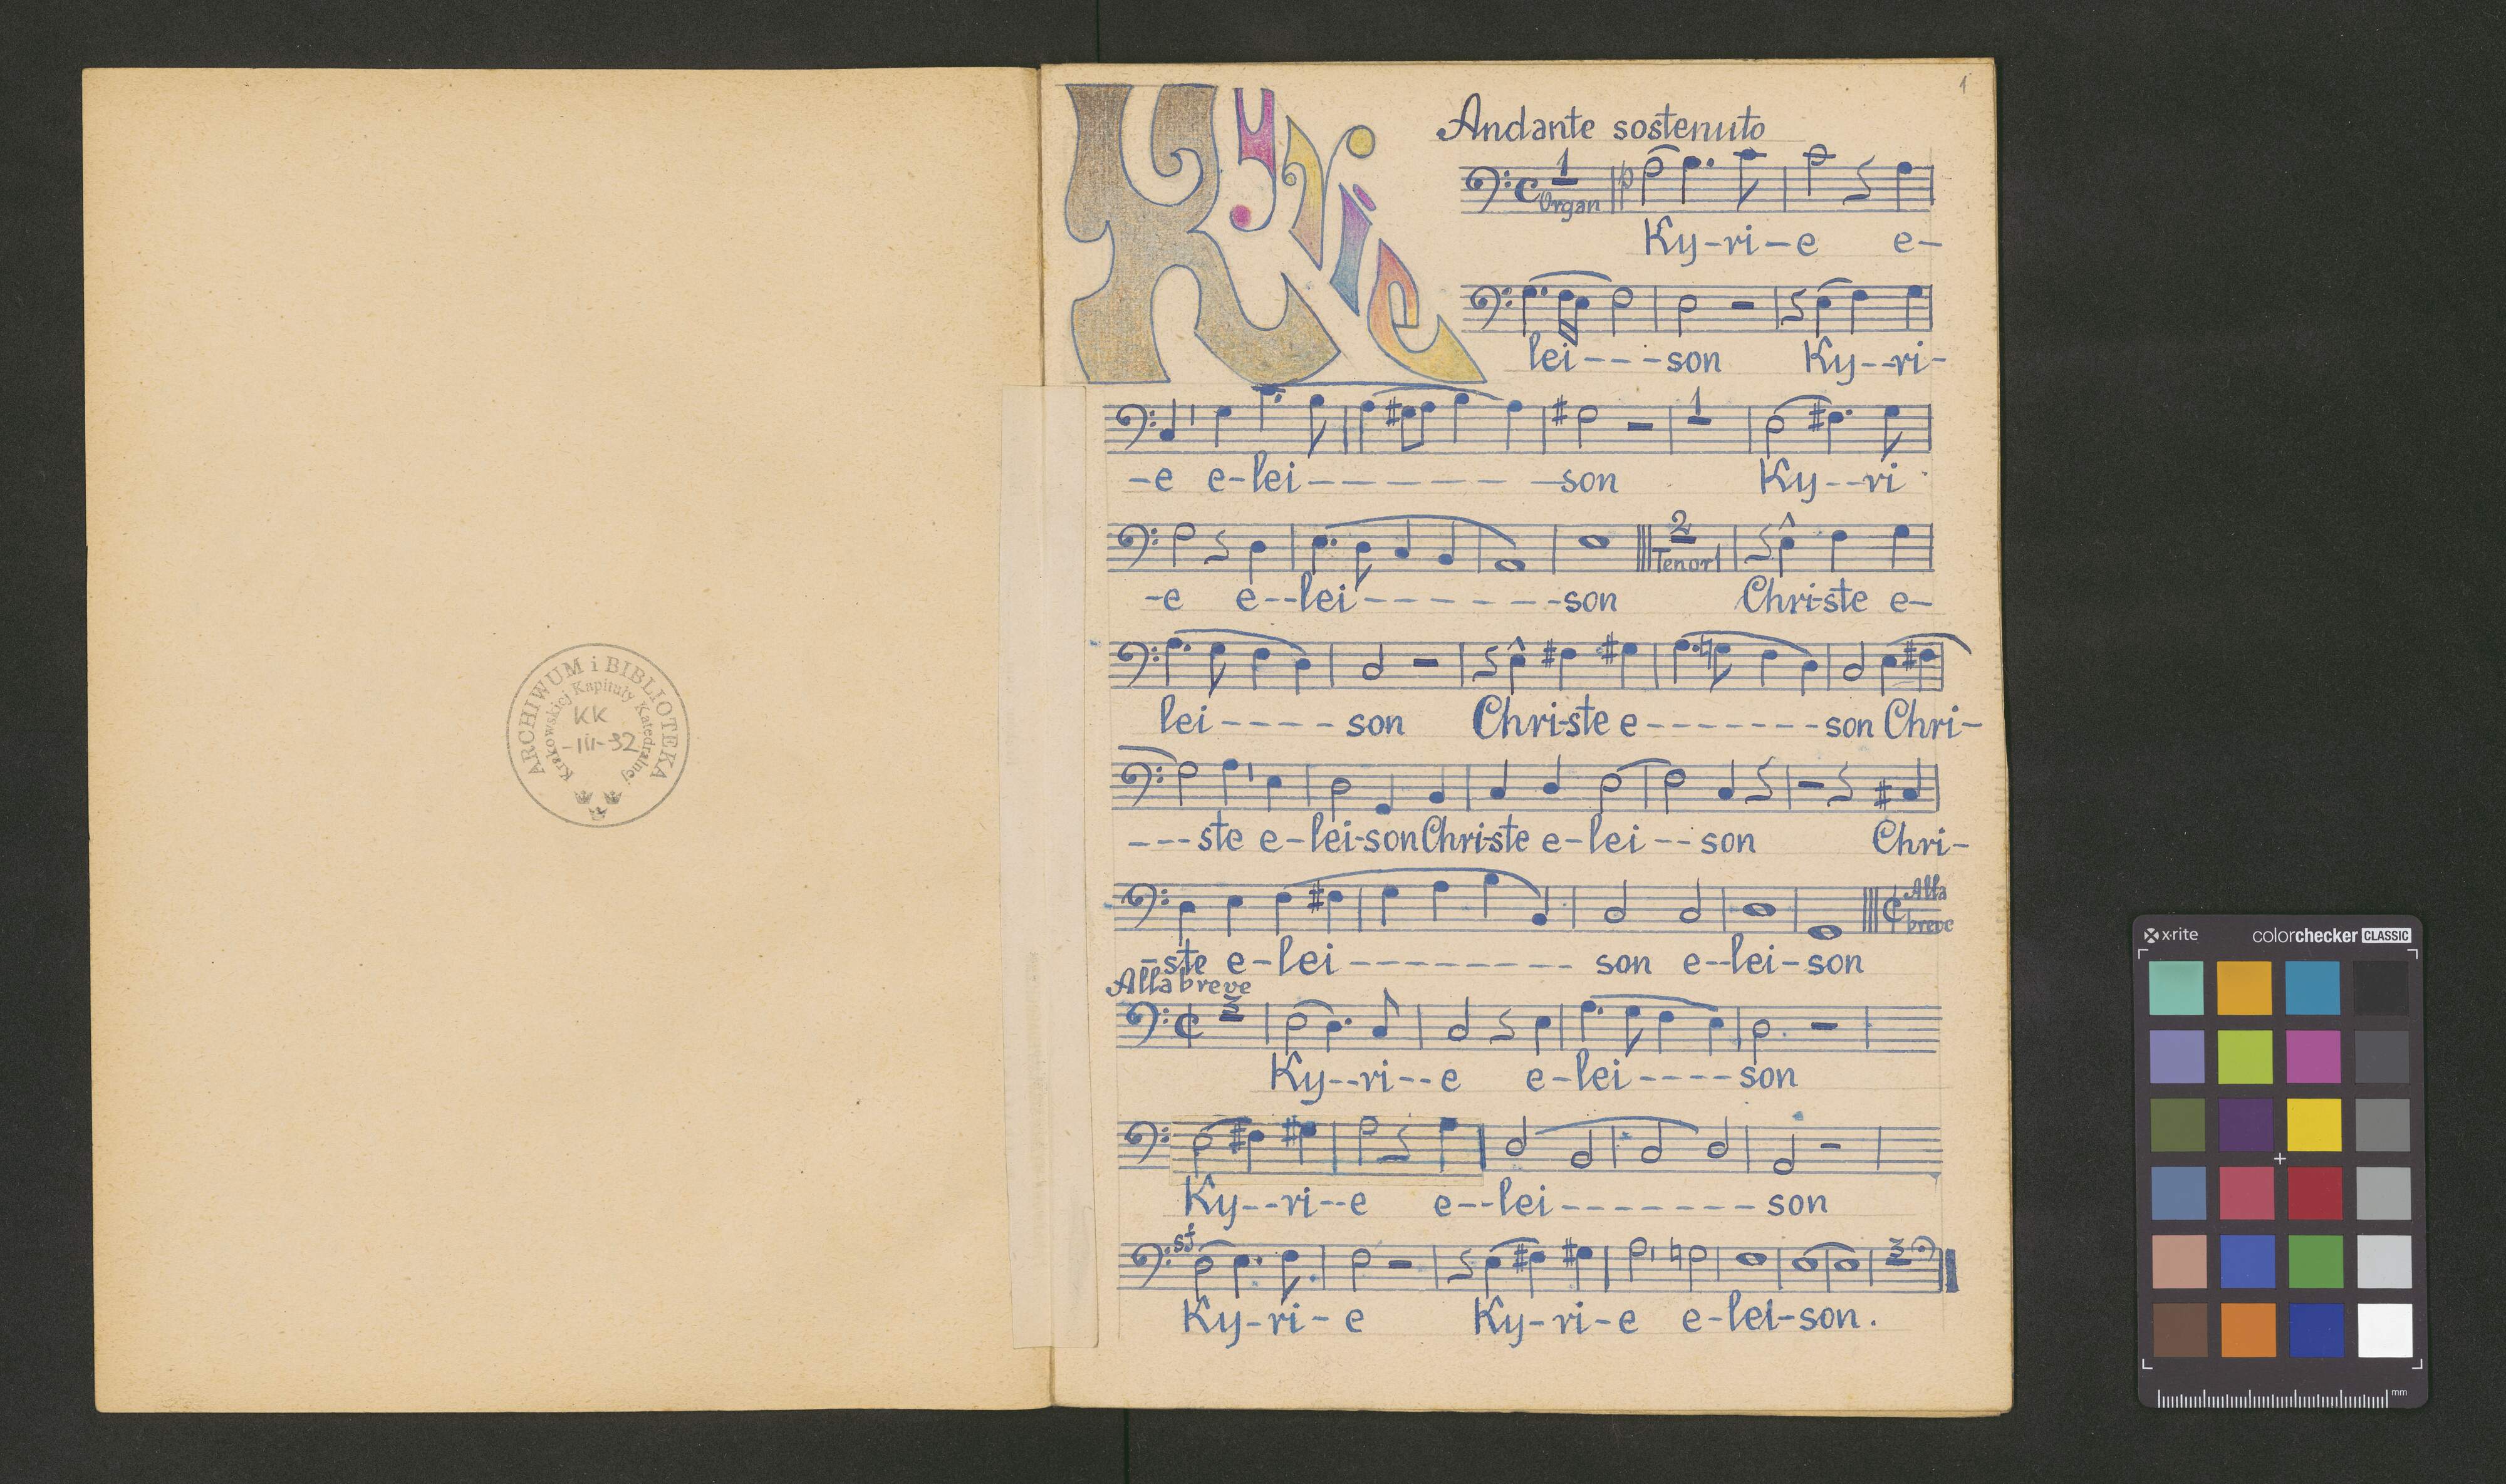 ARCHIWUM i BIBLIOTEKA
Krakowskiej Kapituły Katedralnej
KK
-III-32
1
Kyrie
Andante sostenuto
1
Organ
p
Ky-ri-e e-
lei---son Ky--ri-
1
-e e-lei- - - - - - -son Ky--ri
2
Tenor I
-e e--lei- - - - - - -son Christe e-
lei- - - - son Chri-ste e- - - - - - -son Chri-
---ste e-lei-son Chri-ste e-lei--son Chri-
Alla
breve
-ste e-lei - - - - - - - - son e--lei-son
Alla breve
3
Ky--ri--e e-lei----son
Ky--ri--e e--lei- - - - - - - - son
sf
3
Ky-ri-e Ky-ri-e e-lei-son.
x·rite colorchecker CLASSIC
mm